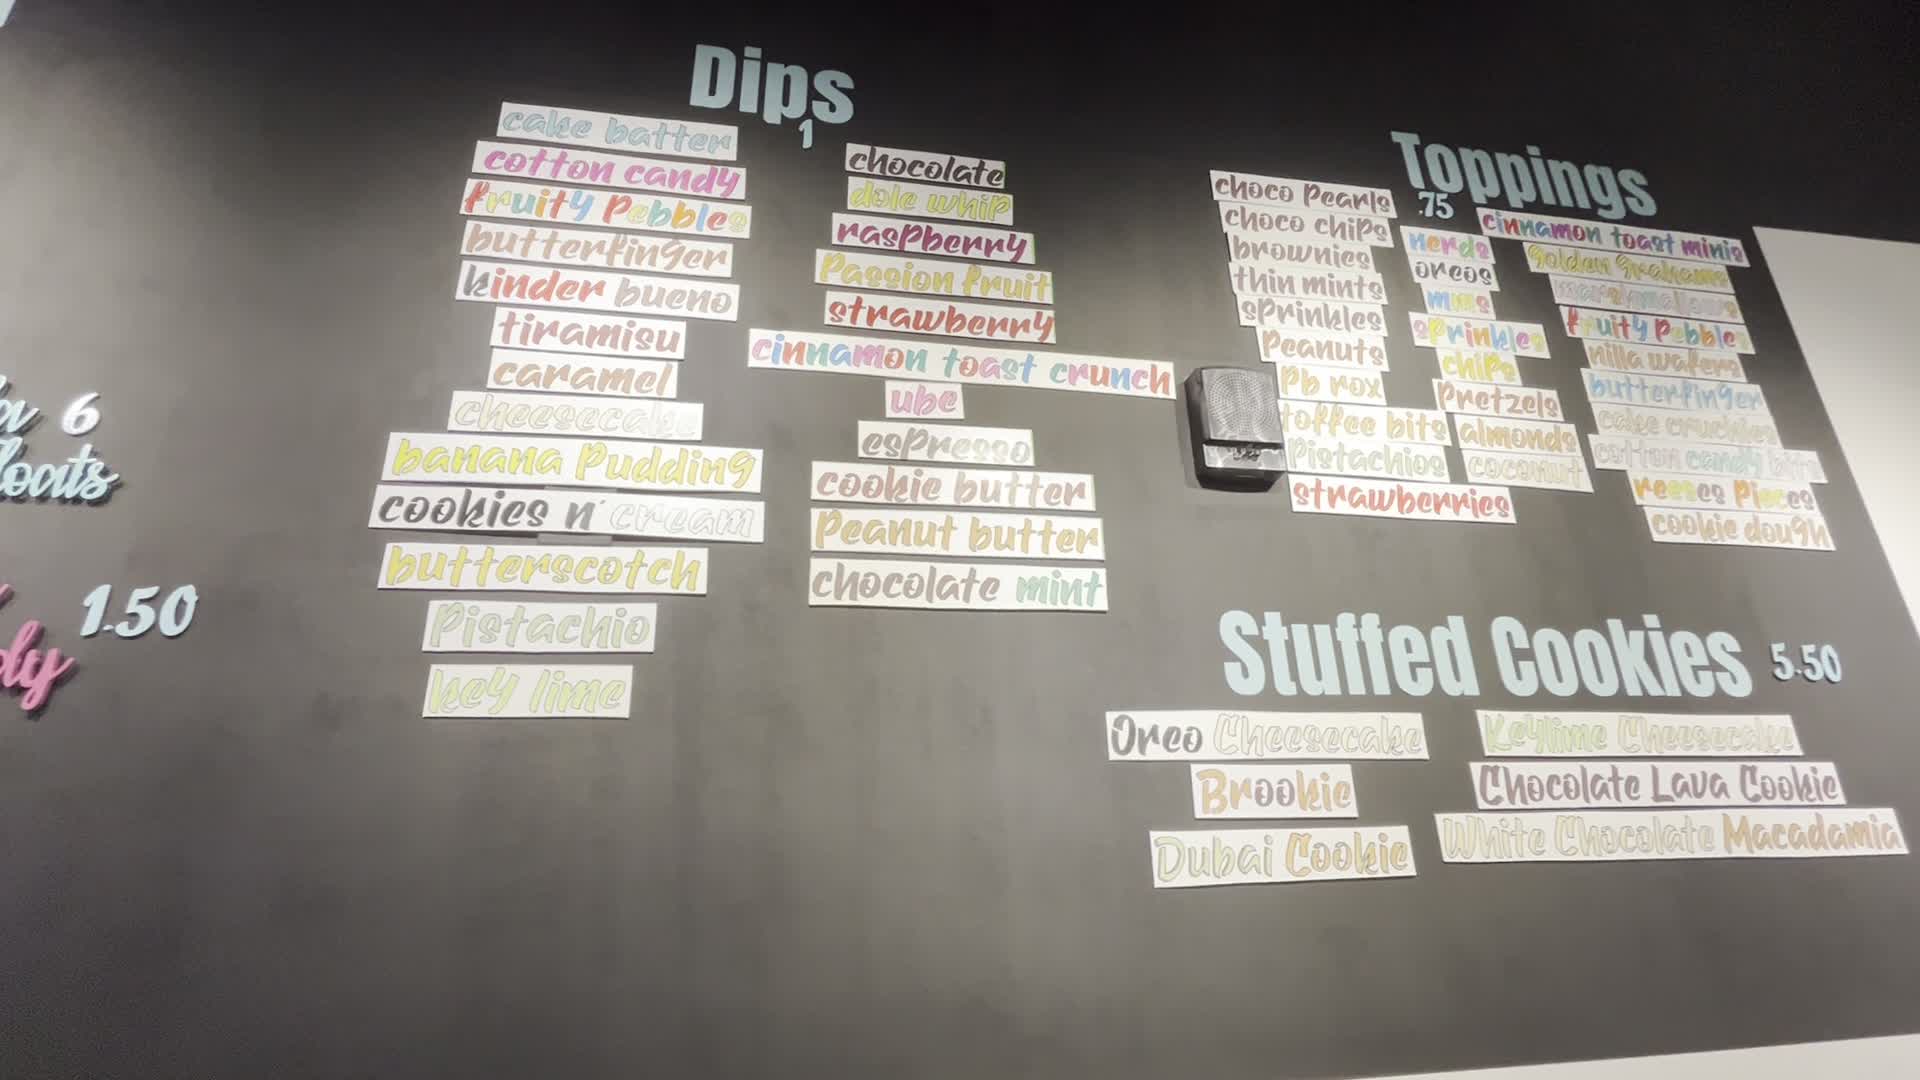 6
1.50
Dips
1
cake batter
cotton candy
fruity Pebbles
butterfinger
kinder bueno
tiramisu
caramel
cheesecake
banana Pudding
cookies n' cream
butterscotch
Pistachio
key lime
chocolate
dole whip
raspberry
Passion fruit
strawberry
cinnamon toast crunch
ube
espresso
cookie butter
Peanut butter
chocolate mint
Toppings
.75
choco Pearls
choco chips
brownies
thin mints
sprinkles
Peanuts
Pb rox
toffee bits
Pistachios
strawberries
nerds
oreos
mms
sprinkles
chips
Pretzels
almonds
coconut
cinnamon toast minis
Golden Grahams
marshmallows
fruity Pebbles
nilla wafers
butterfinger
cake crunchies
cotton candy bits
reeses Pieces
cookie dough
Stuffed Cookies 5.50
Oreo Cheesecake
Brookie
Dubai Cookie
Keylime Cheesecake
Chocolate Lava Cookie
White Chocolate Macadamia